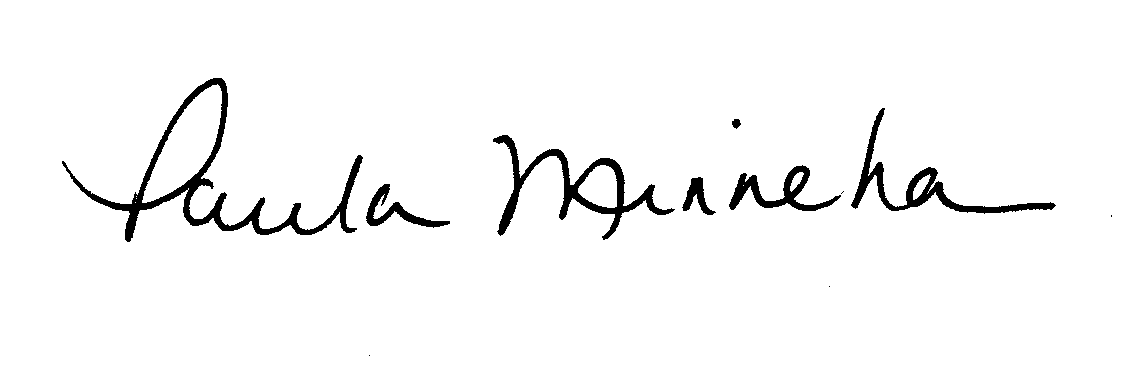 Paula Minneha